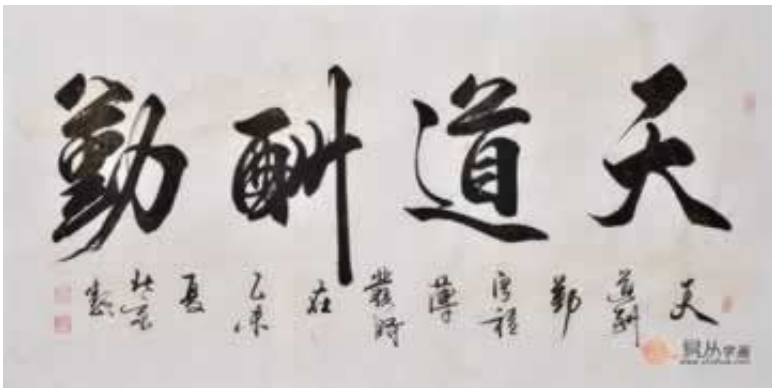 天道酬勤
天道酬勤厚積薄發時在乙未夏
易从字画